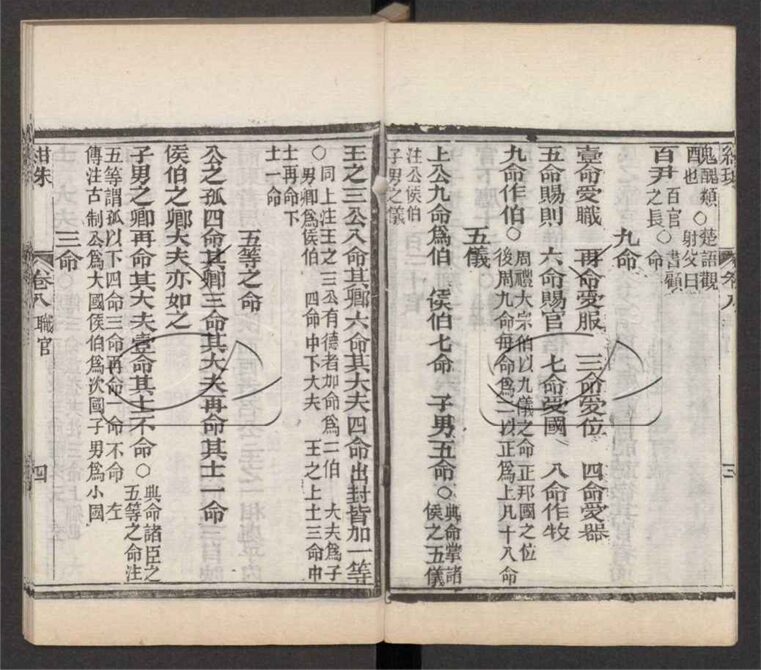 鬼醜類〇楚語觀射父曰
醜也 百官〇書顧
百尹之長〇命
九命
壹命受職 再命受服 三命受位 四命受器
五命賜則 六命賜官 七命受國 八命作牧
九命作伯〇周禮大宗伯以九儀之命正邦國之位
後周九命每命爲二以正爲上凡十八命
五儀
上公九命爲伯 侯伯七命 子男五命〇典命掌諸侯之五儀
注公侯伯
子男之儀
王之三公八命其卿六命其大夫四命出封皆加一等
〇同上注王之三公有德者加命爲二伯 大夫爲子
男卿爲侯伯 四命中下大夫 王之上士三命中
士再命下
士一命
五等之命
公之孤四命其卿三命其大夫再命其士一命
侯伯之卿大夫亦如之
子男之卿再命其大夫壹命其士不命〇典命諸臣之
五等之命注
五等謂孤以下四命三命再命一命不命 左
傳注古制公爲大國侯伯爲次國子男爲小國
三命
紺珠 卷八 職官 四